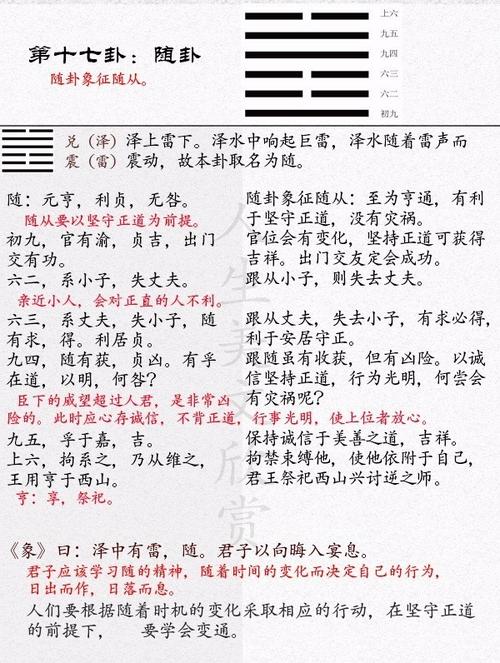 第十七卦：随卦
随卦象征随从。
上六
九五
九四
六三
六二
初九
兑（泽）泽上雷下。泽水中响起巨雷，泽水随着雷声而
震（雷）震动，故本卦取名为随。
随：元亨，利贞，无咎。
随从要以坚守正道为前提。
初九，官有渝，贞吉，出门
交有功。
六二，系小子，失丈夫。
亲近小人，会对正直的人不利。
六三，系丈夫，失小子，随
有求，得。利居贞。
九四，随有获，贞凶。有孚
在道，以明，何咎？
臣下的威望超过人君，是非常凶
险的。此时应心存诚信，不背正道，行事光明，使上位者放心。
九五，孚于嘉，吉。
上六，拘系之，乃从维之，
王用亨于西山。
亨：享，祭祀。
随卦象征随从：至为亨通，有利
于坚守正道，没有灾祸。
官位会有变化，坚持正道可获得
吉祥。出门交友定会成功。
跟从小子，则失去丈夫。
跟从丈夫，失去小子，有求必得，
利于安居守正。
跟随虽有收获，但有凶险。以诚
信坚持正道，行为光明，何尝会
有灾祸呢？
保持诚信于美善之道，吉祥。
拘禁束缚他，使他依附于自己，
君王祭祀西山兴讨逆之师。
《象》曰：泽中有雷，随。君子以向晦入宴息。
君子应该学习随的精神，随着时间的变化而决定自己的行为，
日出而作，日落而息。
人们要根据随着时机的变化采取相应的行动，在坚守正道
的前提下， 要学会变通。
人生美文欣赏